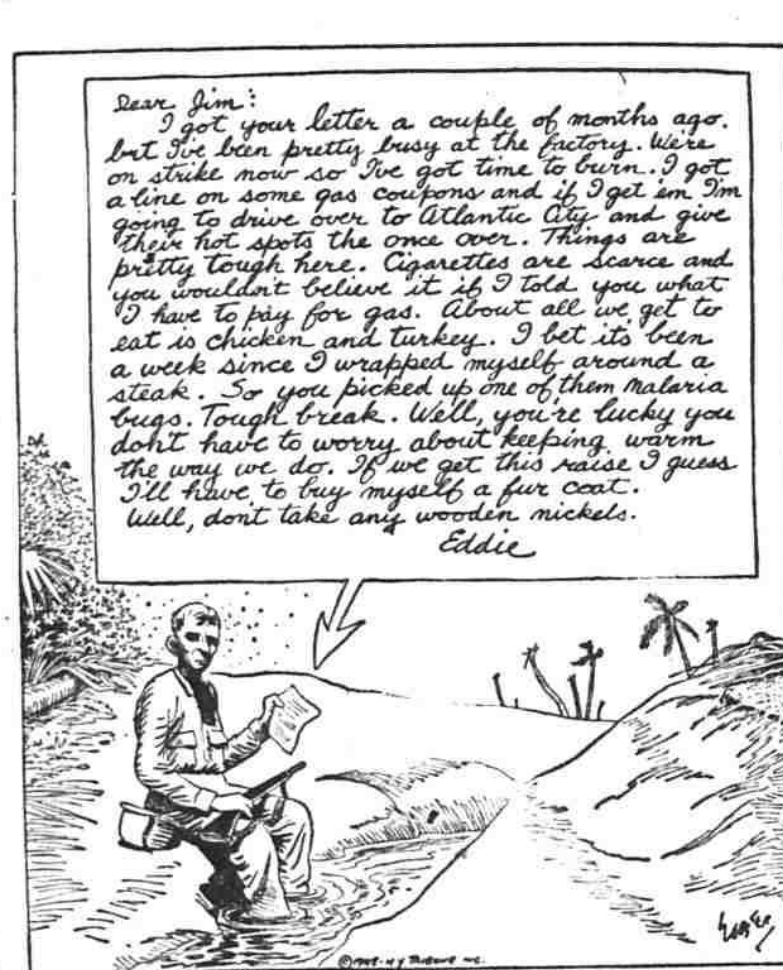 Dear Jim:
I got your letter a couple of months ago.
but I've been pretty busy at the factory. We're
on strike now so I've got time to burn. I got
a line on some gas coupons and if I get em I'm
going to drive over to Atlantic City and give
their hot spots the once over. Things are
pretty tough here. Cigarettes are scarce and
you wouldn't believe it if I told you what
I have to pay for gas. About all we get to
eat is chicken and turkey. I bet it's been
a week since I wrapped myself around a
steak. So you picked up one of them malaria
bugs. Tough break. Well, you're lucky you
don't have to worry about keeping warm
the way we do. If we get this raise I guess
I'll have to buy myself a fur coat.
Well, don't take any wooden nickels.
Eddie
N Y TRIBUNE INC.